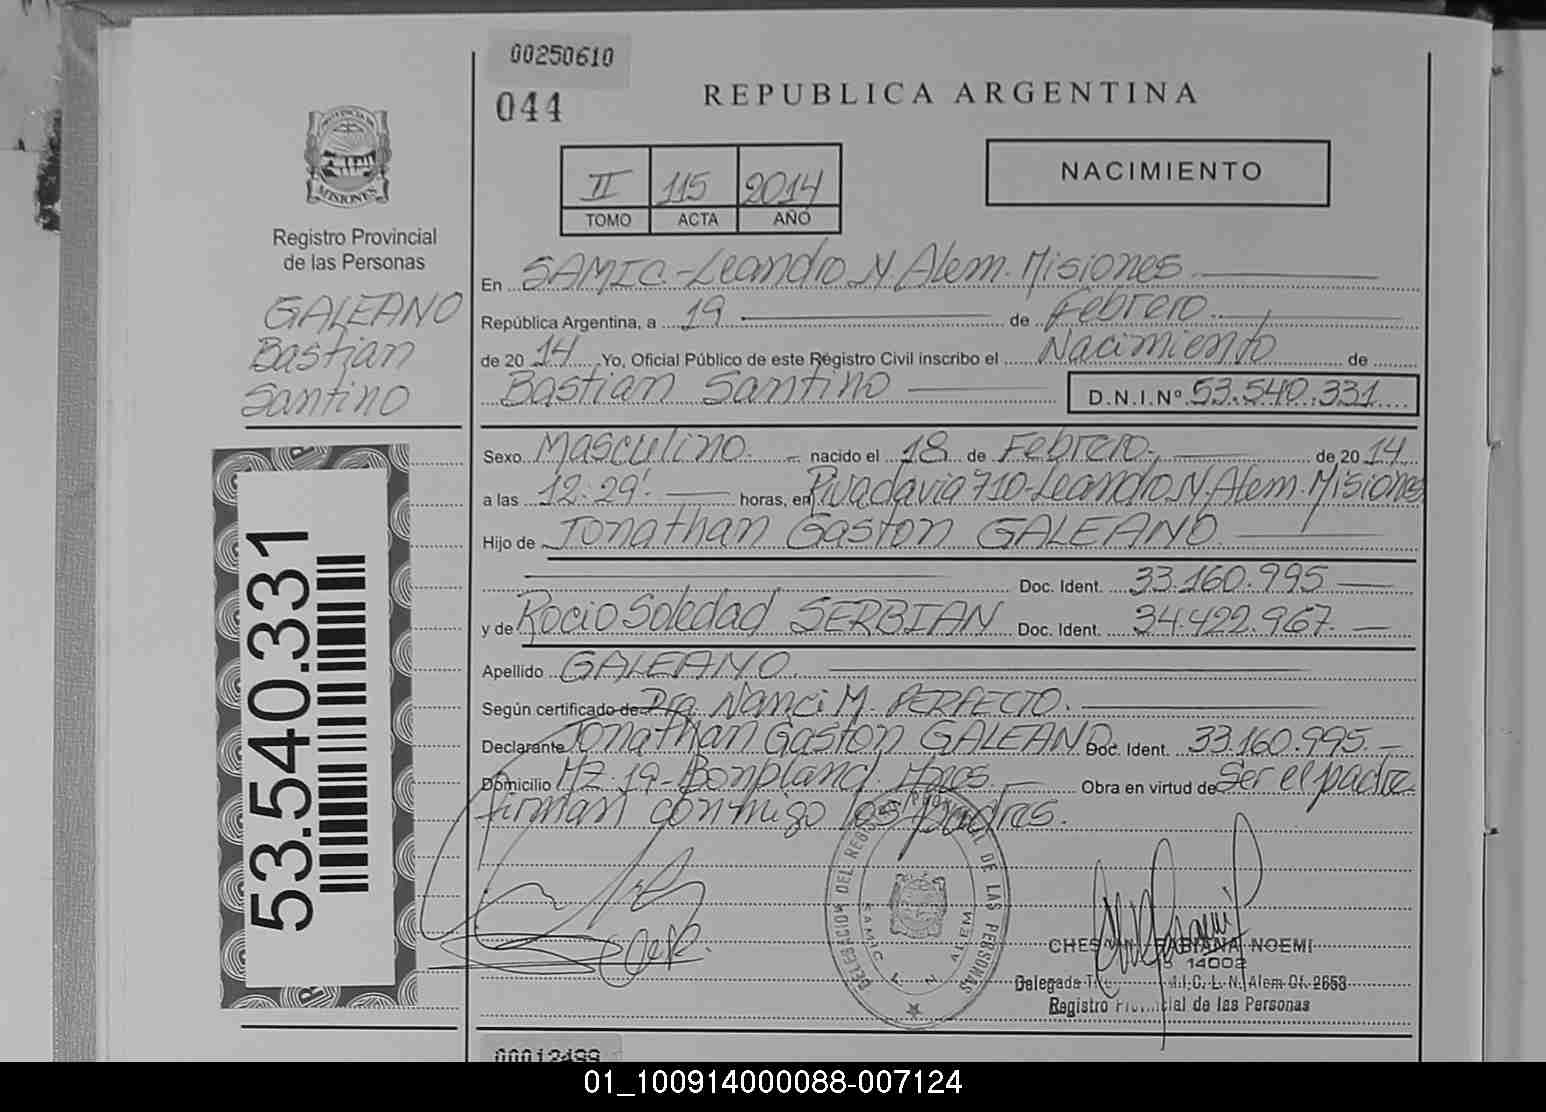 00250610
044
REPUBLICA ARGENTINA
NACIMIENTO
II 115 2014
TOMO ACTA AÑO
PROVINCIA DE
MISIONES
Registro Provincial
de las Personas
GALEANO
Bastian
Santino
53.540.331
En SAMIC-Leandro N. Alem. Misiones
República Argentina, a 19 de Febrero
de 2014 Yo, Oficial Público de este Registro Civil inscribo el Nacimiento de
Bastian Santino D.N.I.Nº 53.540.331
Sexo Masculino. nacido el 18 de Febrero. de 2014
a las 12:29'. horas, en Rivadavia 710-Leandro N. Alem. Misiones
Hijo de Jonathan Gaston GALEANO.
Doc. Ident. 33.160.995
y de Rocio Soledad SERBIAN Doc. Ident. 34.422.967.
Apellido GALEANO.
Según certificado de Dra. Nanci M. PERFECTO.
Declarante Jonathan Gaston GALEANO Doc. Ident. 33.160.995.
Domicilio Mz. 19-Bonpland. Mnes. Obra en virtud de Ser el padre
firman conmigo los padres.
DELEGACION DEL REGISTRO PROVINCIAL DE LAS PERSONAS
SAMIC L N ALEM
FABIANA NOEMI
14002
Delegada L. N. Alem Of. 2653
Registro Provincial de las Personas
00012499
01_100914000088-007124